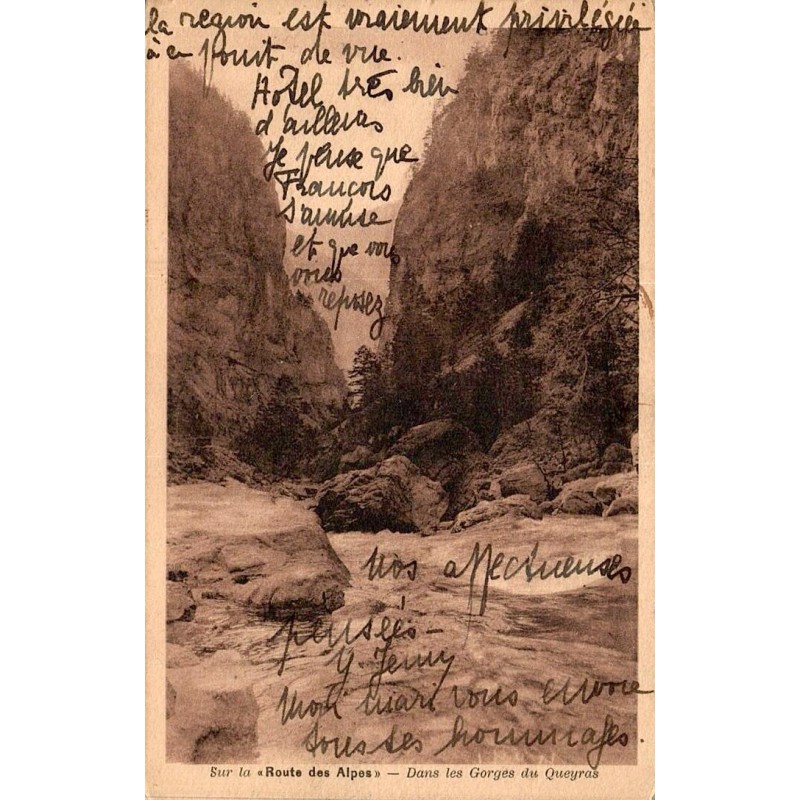 la region est vraiement privilégiée
à ce point de vue.
Hotel très bien
d'ailleurs
Je pense que
François
s'amuse
et que vous
vous
reposez
Nos affectueuses
pensées -
Y. Jenny
Mon mari vous envoie
tous ses hommages.
Sur la «Route des Alpes» — Dans les Gorges du Queyras